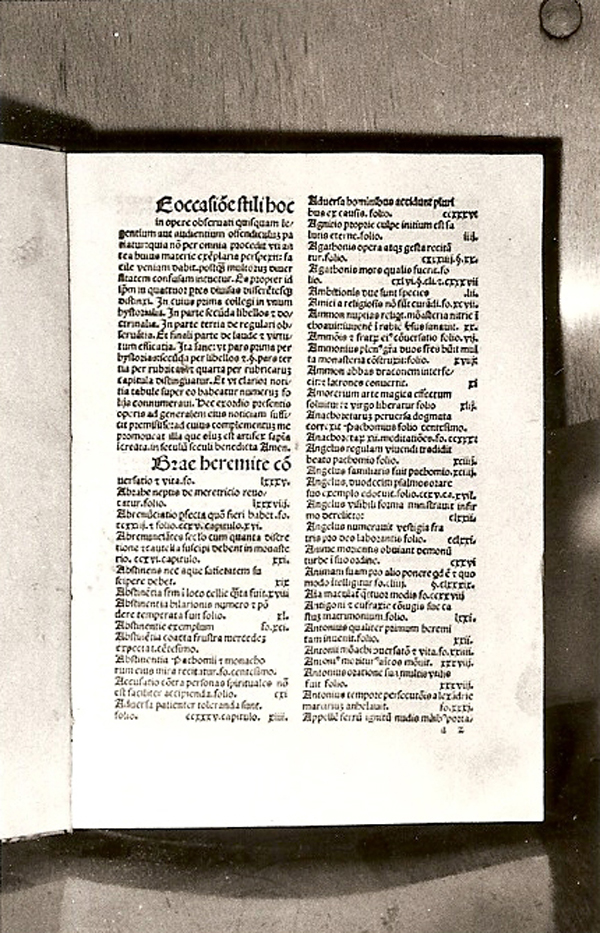 E occasiōe stili hoc
in opere obseruati quisquam le⸗
gentium aut audientium offendiculuz pa
tiatur quia nō per omnia procedit viā an
tea huius materie exēplaria perspexit: fa
cile veniam dabit. postq̄ multorū diuer
sitatem confusam intuetur. Et propter id
ipm in quattuor ptes diuisas discretēsq̄
distinxi. In cuius prima collegi in vnum
hystorialia. In parte secūda libellos ⁊ do⸗
ctrinalia. In parte tertia de regulari ob⸗
seruātia. Et finali parte de laude ⁊ virtu⸗
tum efficatia. Ita sane: vt pars prima per
hystorias: secūda per libellos ⁊ .§. pars ter
tia per rubricas: quarta per rubricarum
capitula distinguatur. Et vt clarior noti⸗
tia tabule super eo habeatur numeros fo
lijs connumeraui. Dec exordio presentis
operis ad generalem eius noticiam suffi⸗
cit premisisse: ad cuius complementum me
promoueat illa que eius est artifex sapiē
increata. in seculū seculi benedicta Amen.
Brae heremite cō
uersatio ⁊ vita. fo. lxxxv.
Abrabe neptis de meretricio reuo⸗
catur. folio. lxxxviij.
Abrenūciatio pfecta quō fieri habet. fo.
ccxxiij. ⁊ folio. ccxv. capitulo. xvi.
Abrenunciātes seclo cum quanta discre
tione ⁊ cautela suscipi debent in monaste
rio. ccxvi. capitulo. xxi.
Abstinens nec aque satietatem su
scipere debet. xix
Abstinētia frm i loco cellie q̄ta fuit. xviij
Abstinentia hilarionis numero ⁊ pō
dere temperata fuit folio. xl.
Abstinentie exemplum fo. xci.
Abstinētia coacta frustra mercedez
expectat. cētesimo.
Abstinentia Pachomij ⁊ monacho
rum eius mira recitatur. fo. centesimo.
Accusatio cōtra personas spirituales nō
est faciliter accipienda. folio. cxi
Aduersa patienter toleranda sunt.
folio. ccxxxv. capitulo. xiiij.
Aduersa hominibus accidunt pluri
bus ex causis. folio. ccxxxvi
Agnicio proprie culpe initium est sa
lutis eterne. folio. liij.
Agathonis opera atqz gesta recitā
tur. folio. cxxxiij. §. xx.
Agathonis mors qualis fuerit. fo
lio. cxlvi. §. cli. ⁊. cxxxvij
Ambitionis due sunt species .lij.
Amici a religiosis nō sūt curādi. fo. xcvij.
Ammon nuptias refugit. mōasteria nitrie ī
choauit: iuuenē ī rabie v̄sus sanauit. xx.
Ammōis ⁊ fratx̄ ei⁹ cōuersatio folio. vij.
Ammonius plen⁹ gr̄a duos fr̄es hūit mul
ta monasteria cōstruxit. folio. xxvij.
Ammon abbas draconem interfe⸗
cit: ⁊ latrones conuertit. xi
Amatorium arte magica effectum
soluitur: ⁊ virgo liberatur folio xlij.
Anachoretarum peruersa dogmata
correxit Pachomius folio centesimo.
Anachoretax̄ xij. meditatiōes. fo. ccxxxi
Angelus regulam viuendi tradidit
beato pachomio folio. xciij.
Angelus familiaris fuit pachomio. xciij.
Angelus, duodecim psalmos orare
suo exemplo edocuit. folio. ccxv. ca. xvij.
Angelus visibili forma ministrauit infir
mo derelicto: clxxij.
Angelus numerauit vestigia fra
tris pro deo laborantis folio. cclxxi.
Anime morientis obuiant demonū
turbe ī suo ordine. cxxvi
Animam suam pro alio ponere qd ē ⁊ quo
modo ītelligitur fo. cliij. §. clxxxix.
Aīa macula ī q̄ttuor modis fo. ccxxviij
Antigoni ⁊ eufraxie cōiugis sue ca
stuz matrimonium. folio. lxxi.
Antonius qualiter primum heremi
tam inuenit. folio. xxij.
Antonij mōachi ɔuersatō ⁊ vita. fo. xxiij.
Antoni⁹ metitur aītes mōuit. xxxviij.
Antonius oratione sua multis vtilis
fuit folio. xxxviij.
Antonius tempore persecutiōis alexādrie
martirium anhelauit. fo. xxxj.
Appellē ferrū ignitū nudis manib⁹ porta⸗
a 2